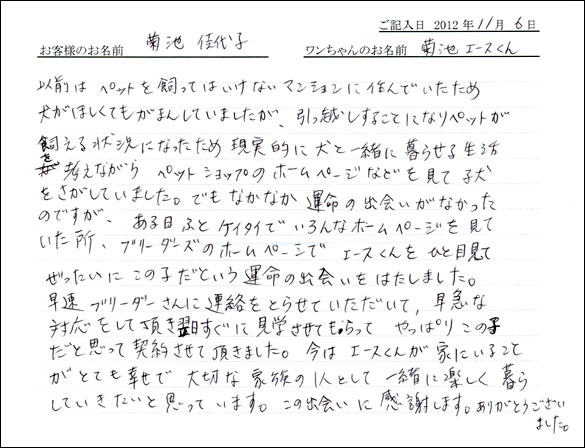 ご記入日 2012年11月6日
お客様のお名前 菊池 佳代子 ワンちゃんのお名前 菊池エースくん
以前は ペットを飼ってはいけないマンションに住んでいたため
犬がほしくてもがまんしていましたが、引っ越しすることになりペットが
飼える状況になったため 現実的に犬と一緒に暮らせる生活
を考えながら ペットショップのホームページなどを見て子犬
をさがしていました。でもなかなか 運命の出会いがなかった
のですが、 ある日ふとケイタイでいろんなホームページを見て
いた所、ブリーダーズのホームページで エースくんをひと目見て
ぜったいにこの子だという運命の出会いをはたしました。
早速ブリーダーさんに連絡をとらせていただいて、早急な
対応をして頂き翌すぐに見学させてもらって やっぱりこの子
だと思って契約させて頂きました。今はエースくんが家にいること
がとても幸せで 大切な家族の1人として 一緒に楽しく暮ら
していきたいと思っています。この出会いに感謝します。ありがとうござい
ました。